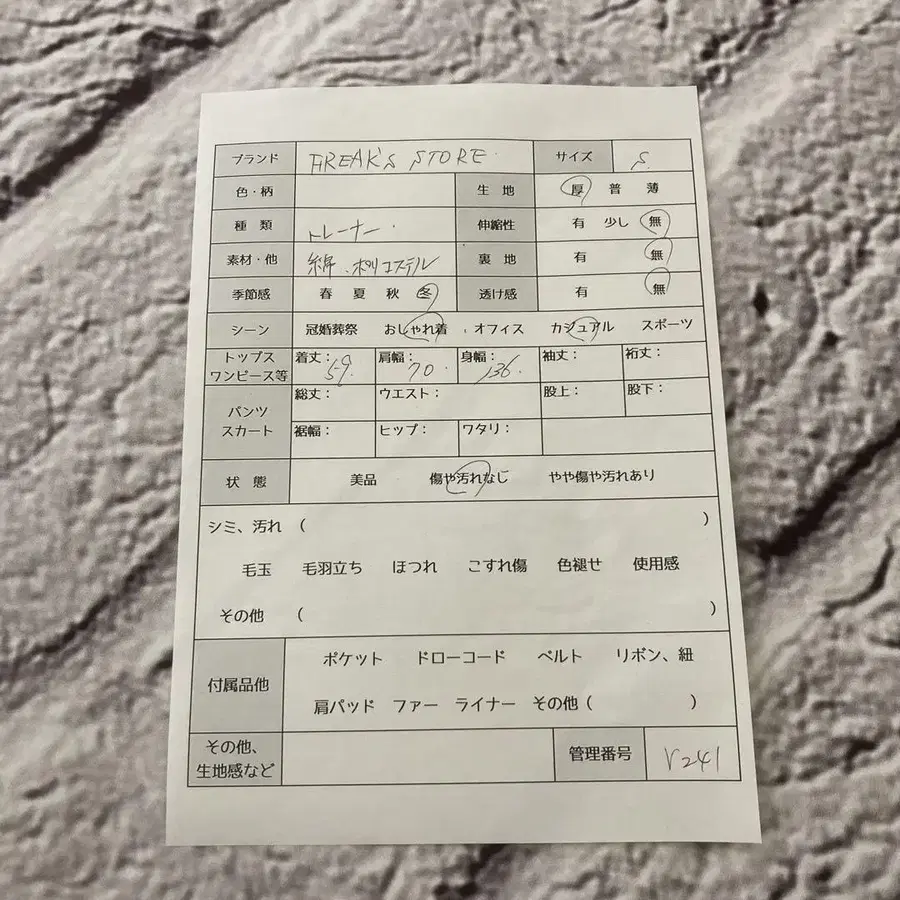 ブランド FREAK'S STORE サイズ S
色・柄 生地 厚 普 薄
種類 トレーナー 伸縮性 有 少し 無
素材・他 綿、ポリエステル 裏地 有 無
季節感 春 夏 秋 冬 透け感 有 無
シーン 冠婚葬祭 おしゃれ着 オフィス カジュアル スポーツ
トップス ワンピース等 着丈: 59. 肩幅: 70. 身幅: 136. 袖丈: 裄丈:
パンツ スカート 総丈: ウエスト: 股上: 股下:
裾幅: ヒップ: ワタリ:
状態 美品 傷や汚れなし やや傷や汚れあり
シミ、汚れ ( )
毛玉 毛羽立ち ほつれ こすれ傷 色褪せ 使用感
その他 ( )
付属品他 ポケット ドローコード ベルト リボン、紐
肩パッド ファー ライナー その他 ( )
その他、
生地感など 管理番号 V241